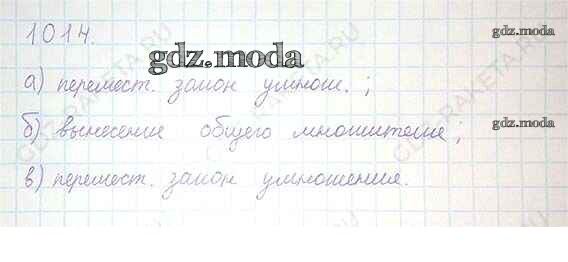 1014.
gdz.moda
gdz.moda
а) перемест. закон умнож. ;
б) вынесение общего множителя;
gdz.moda
в) перемест. закон умножения.
GDZ-RAKETA.RU